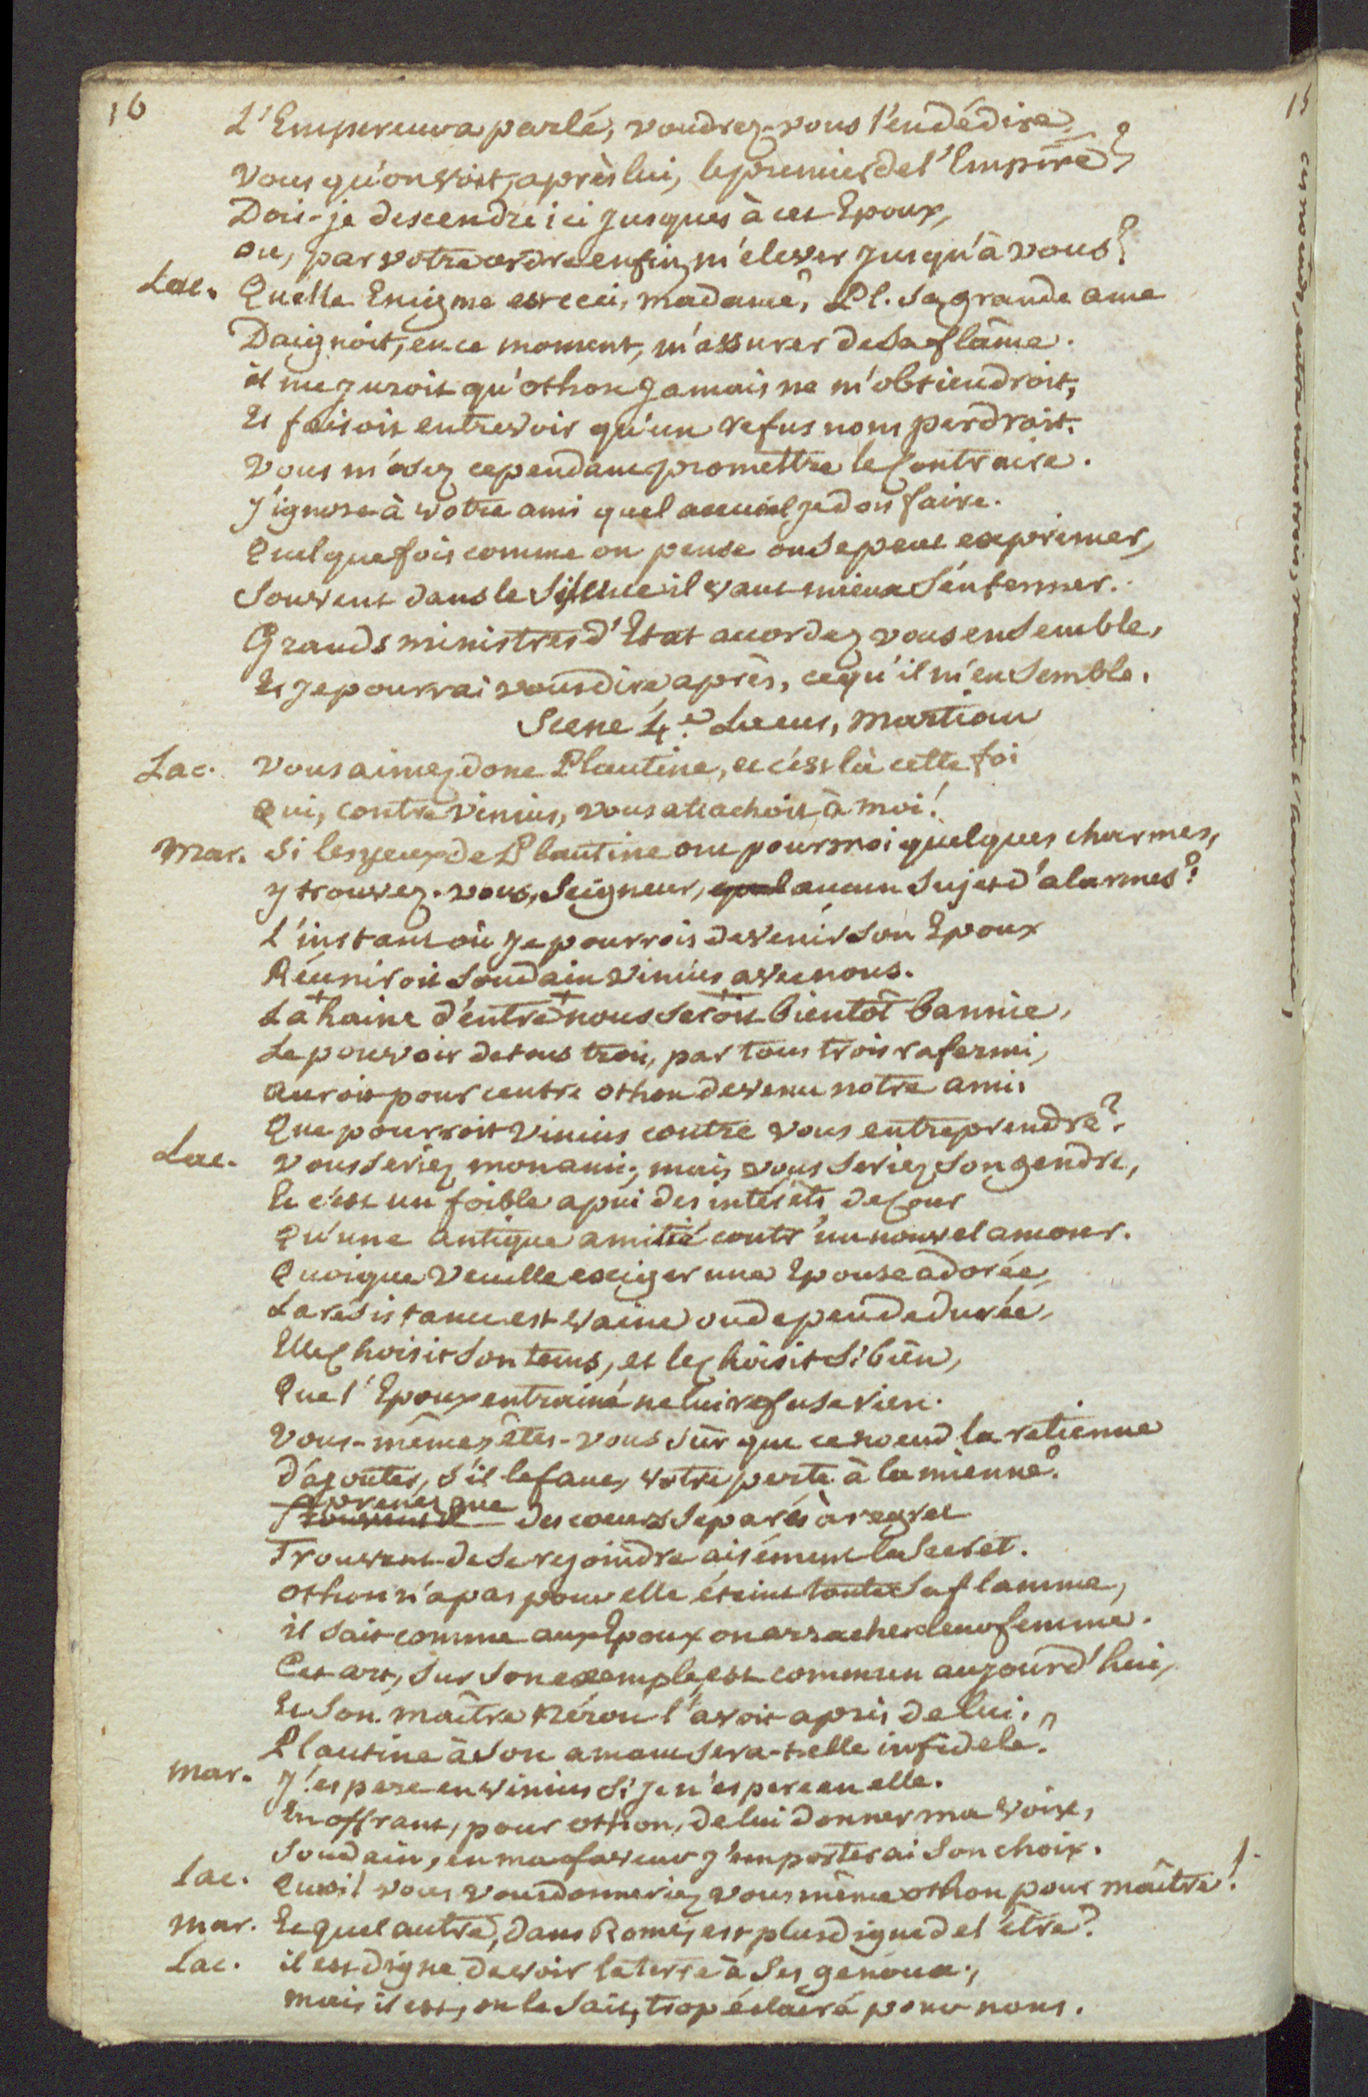 16
L'Empereur a parlé, voudrez-vous l'en dédire,
Vous qu'on voit, après lui, le premier de l'Empire?
Dois-je descendre ici jusques à cet Epoux,
ou, par votre ordre enfin, m'élever jusqu'à vous?
Lac. Quelle Enigme est ceci, madame? Pl. Sa grande ame
Daignoit, en ce moment, m'assurer de sa flâme.
il me juroit qu'othon jamais ne m'obtiendroit,
Et faisoit entrevoir qu'un refus nous perdroit.
Vous m'osez cependant promettre le Contraire.
J'ignore à votre ami quel accueil je dois faire.
Quelquefois comme on pense on se peut exprimer,
Souvent dans le silence il vaut mieux s'enfermer.
Grands ministres d'Etat acordez vous ensemble,
Et je pourrai vous dire après, ce qu'il m'en semble.
Scene 4.e Lacus, Martian
Lac. Vous aimez donc Plautine, et c'est là cette foi
Qui, contre Vinius, vous attachoit à moi!
Mar. Si les yeux de Plautine ont pour moi quelques charmes,
y trouvez-vous, Seigneur, quel aucun sujet d'alarmes?
L'instant où je pourrois devenir son Epoux
Réuniroit soudain Vinius avec nous.
La haine d'entre nous seroit bientôt bannie,
Le pouvoir de tous trois, par tous trois rafermi,
auroit pour centre othon devenu notre ami.
Que pourroit Vinius contre vous entreprendre?
Lac. Vous seriez mon ami, mais vous seriez son gendre,
Et c'est un foible apui des intérêts de Cour
Qu'une antique amitié contr'un nouvel amour.
Quoique veuille exiger une Epouse adorée,
La résistance est vaine ou de peu de durée,
Elle choisit son tems, et le choisit si bien,
Que l'Epoux entrainé ne lui refuse rien.
Vous-même, êtes-vous sûr que ce noeud la retienne
D'ajouter, s'il le faut, votre perte à la mienne?
Aprenez que des coeurs séparés à regret
Trouvent de se rejoindre aisément le secret.
Othon n'a pas pour elle éteint toute sa flamme,
il sait comme aux Epoux on arrache leur femme.
Cet art, sur son exemple, est commun aujourd'hui,
Et son maître Néron l'avoit apris de lui.
Plautine à son amant sera-t-elle infidele?
Mar. J'espere en Vinius si je n'espere en elle.
En offrant, pour othon, de lui donner ma voix,
Soudain, en ma faveur j'emporterai son choix.
Lac. Quoi! vous vous donneriez vous même othon pour maître!
Mar. Et quel autre, dans Rome, est plus digne de l'être?
Lac. il est digne de voir la terre à ses genoux,
Mais il est, on le sait, trop éclairé pour nous.